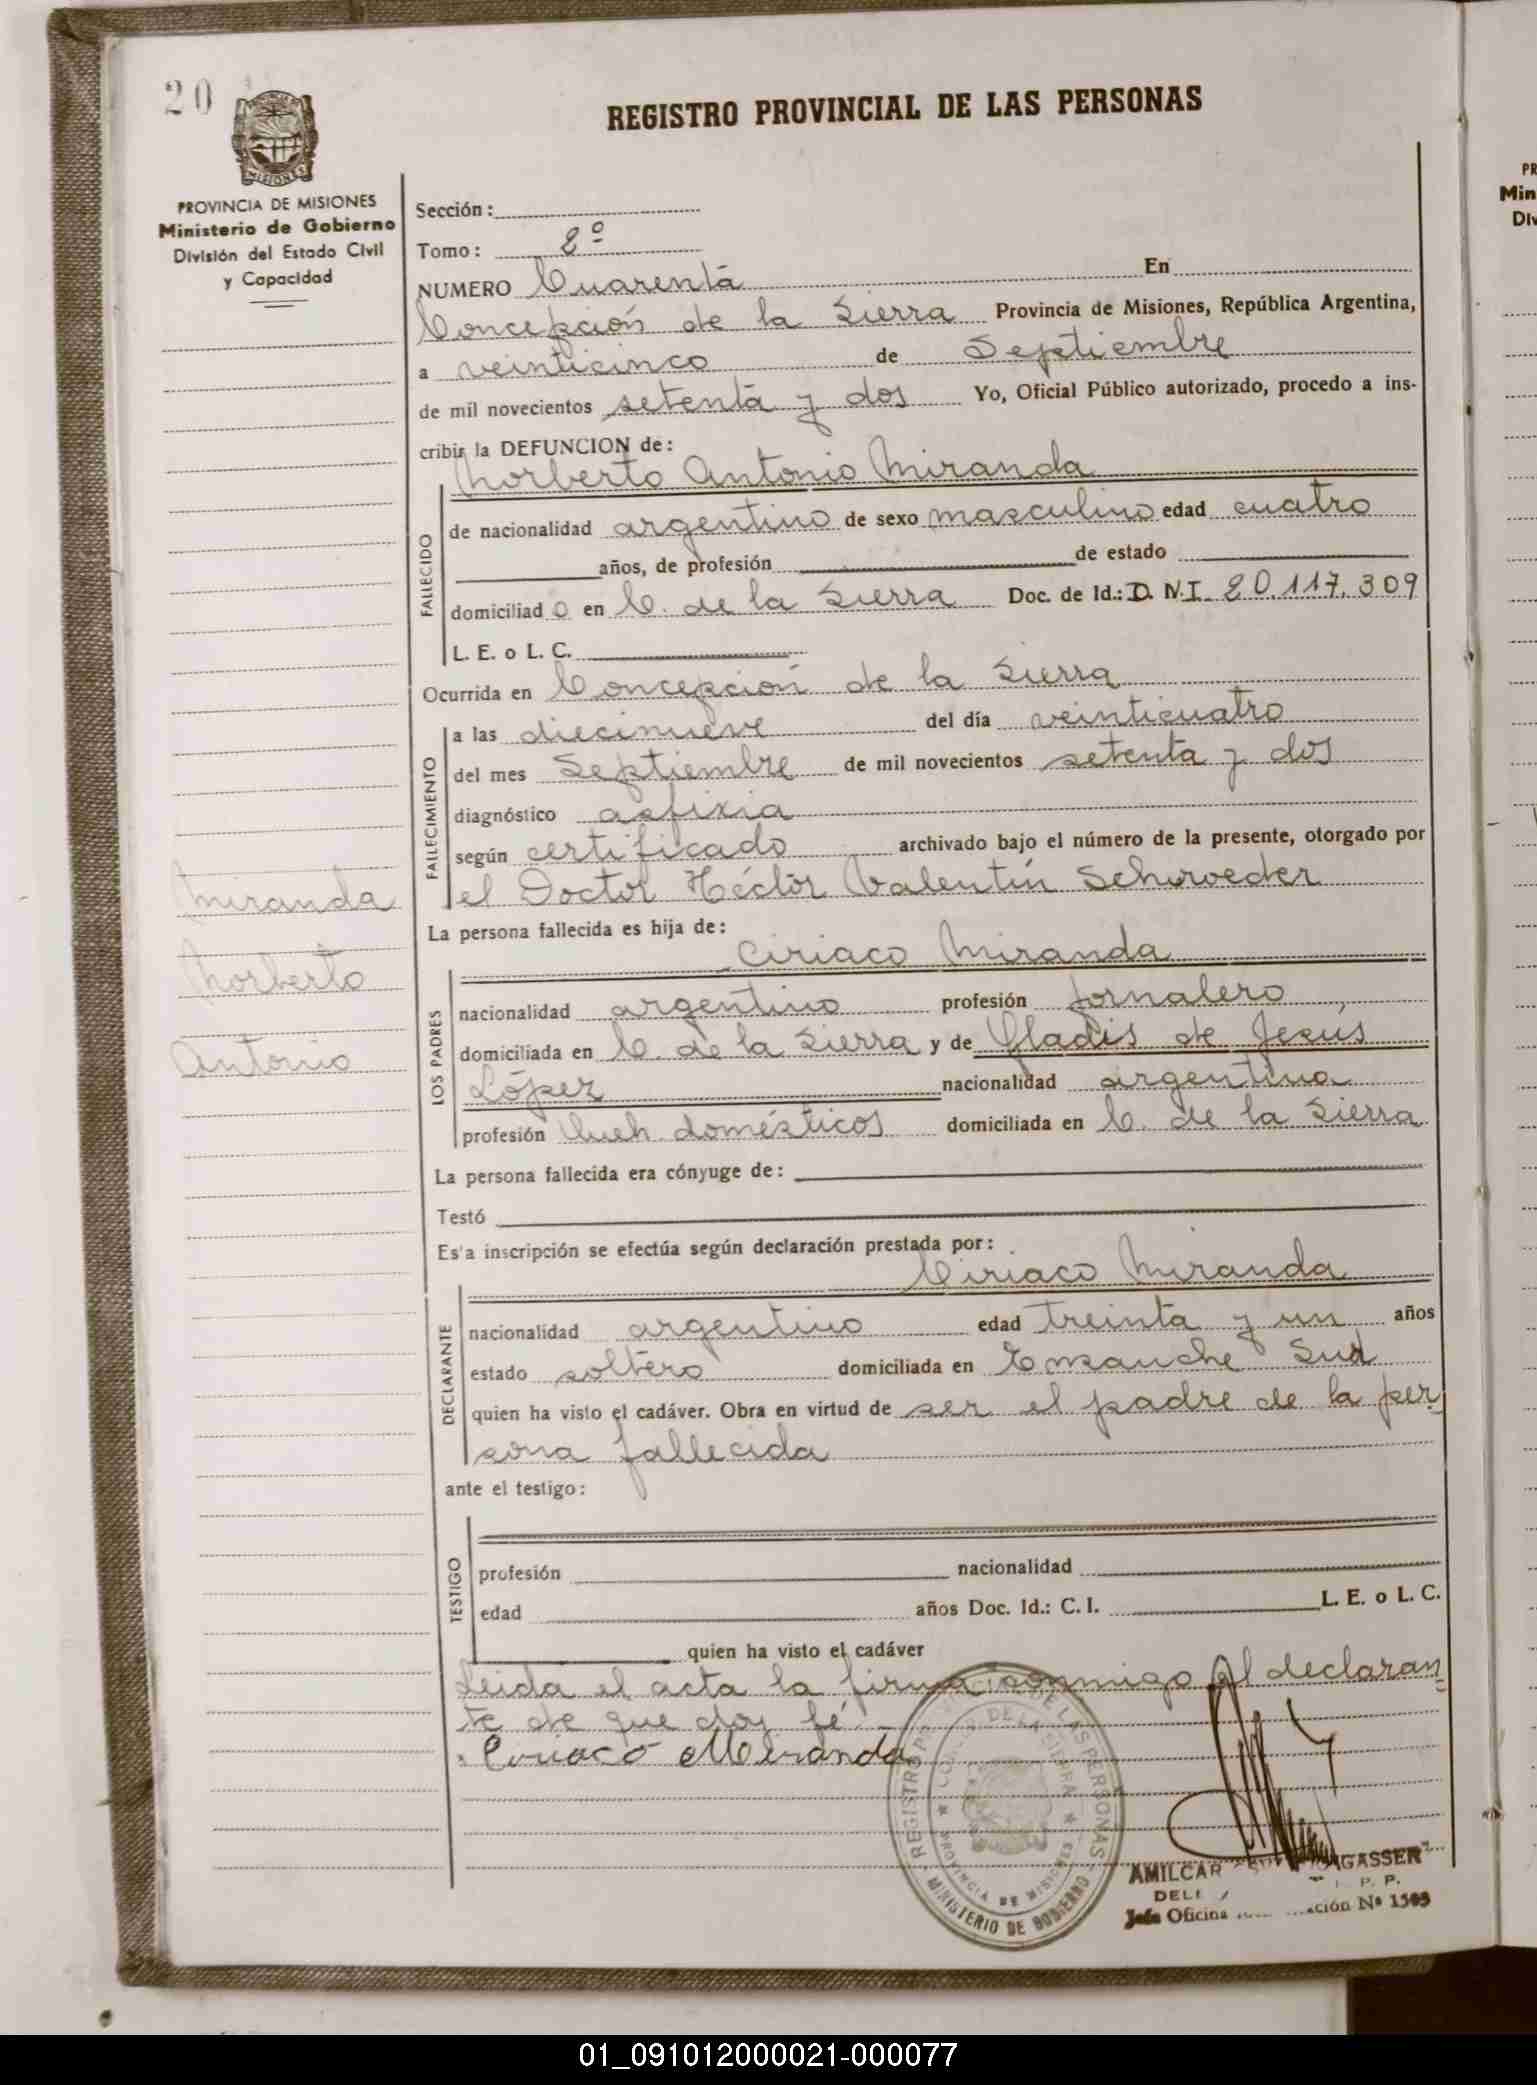 20
REGISTRO PROVINCIAL DE LAS PERSONAS
MISIONES
PROVINCIA DE MISIONES
Ministerio de Gobierno
División del Estado Civil
y Capacidad
Sección:
Tomo: 2º
NUMERO Cuarenta En
Concepción de la Sierra Provincia de Misiones, República Argentina,
a veinticinco de Septiembre
de mil novecientos setenta y dos Yo, Oficial Público autorizado, procedo a ins-
cribir la DEFUNCION de:
Norberto Antonio Miranda
FALLECIDO
de nacionalidad argentino de sexo masculino edad cuatro
años, de profesión de estado
domiciliad o en C. de la Sierra Doc. de Id.: D. N.I. 20.117.309
L. E. o L. C.
Ocurrida en Concepción de la Sierra
FALLECIMIENTO
a las diecinueve del día veinticuatro
del mes Septiembre de mil novecientos setenta y dos
diagnóstico asfixia
según certificado archivado bajo el número de la presente, otorgado por
el Doctor Héctor Valentín Schwoeder
Miranda
Norberto
Antonio
La persona fallecida es hija de:
Ciriaco Miranda
LOS PADRES
nacionalidad argentino profesión jornalero
domiciliada en C. de la Sierra y de Gladis de Jesús
López nacionalidad argentina
profesión queh. domésticos domiciliada en C. de la Sierra
La persona fallecida era cónyuge de:
Testó
Es'a inscripción se efectúa según declaración prestada por:
Ciriaco Miranda
DECLARANTE
nacionalidad argentino edad treinta y un años
estado soltero domiciliada en Ensanche Sud
quien ha visto el cadáver. Obra en virtud de ser el padre de la per
sona fallecida
ante el testigo:
TESTIGO
profesión nacionalidad
edad años Doc. Id.: C. I. L. E. o L. C.
quien ha visto el cadáver
Leída el acta la firma conmigo el declaran
te de que doy fé
Ciriaco Miranda
REGISTRO DE LAS PERSONAS
DE LA SIERRA
PROVINCIA DE MISIONES
MINISTERIO DE GOBIERNO
AMILCAR GASSER
Jefe Oficina Nº 1505
PR
Min
Div
01_091012000021-000077